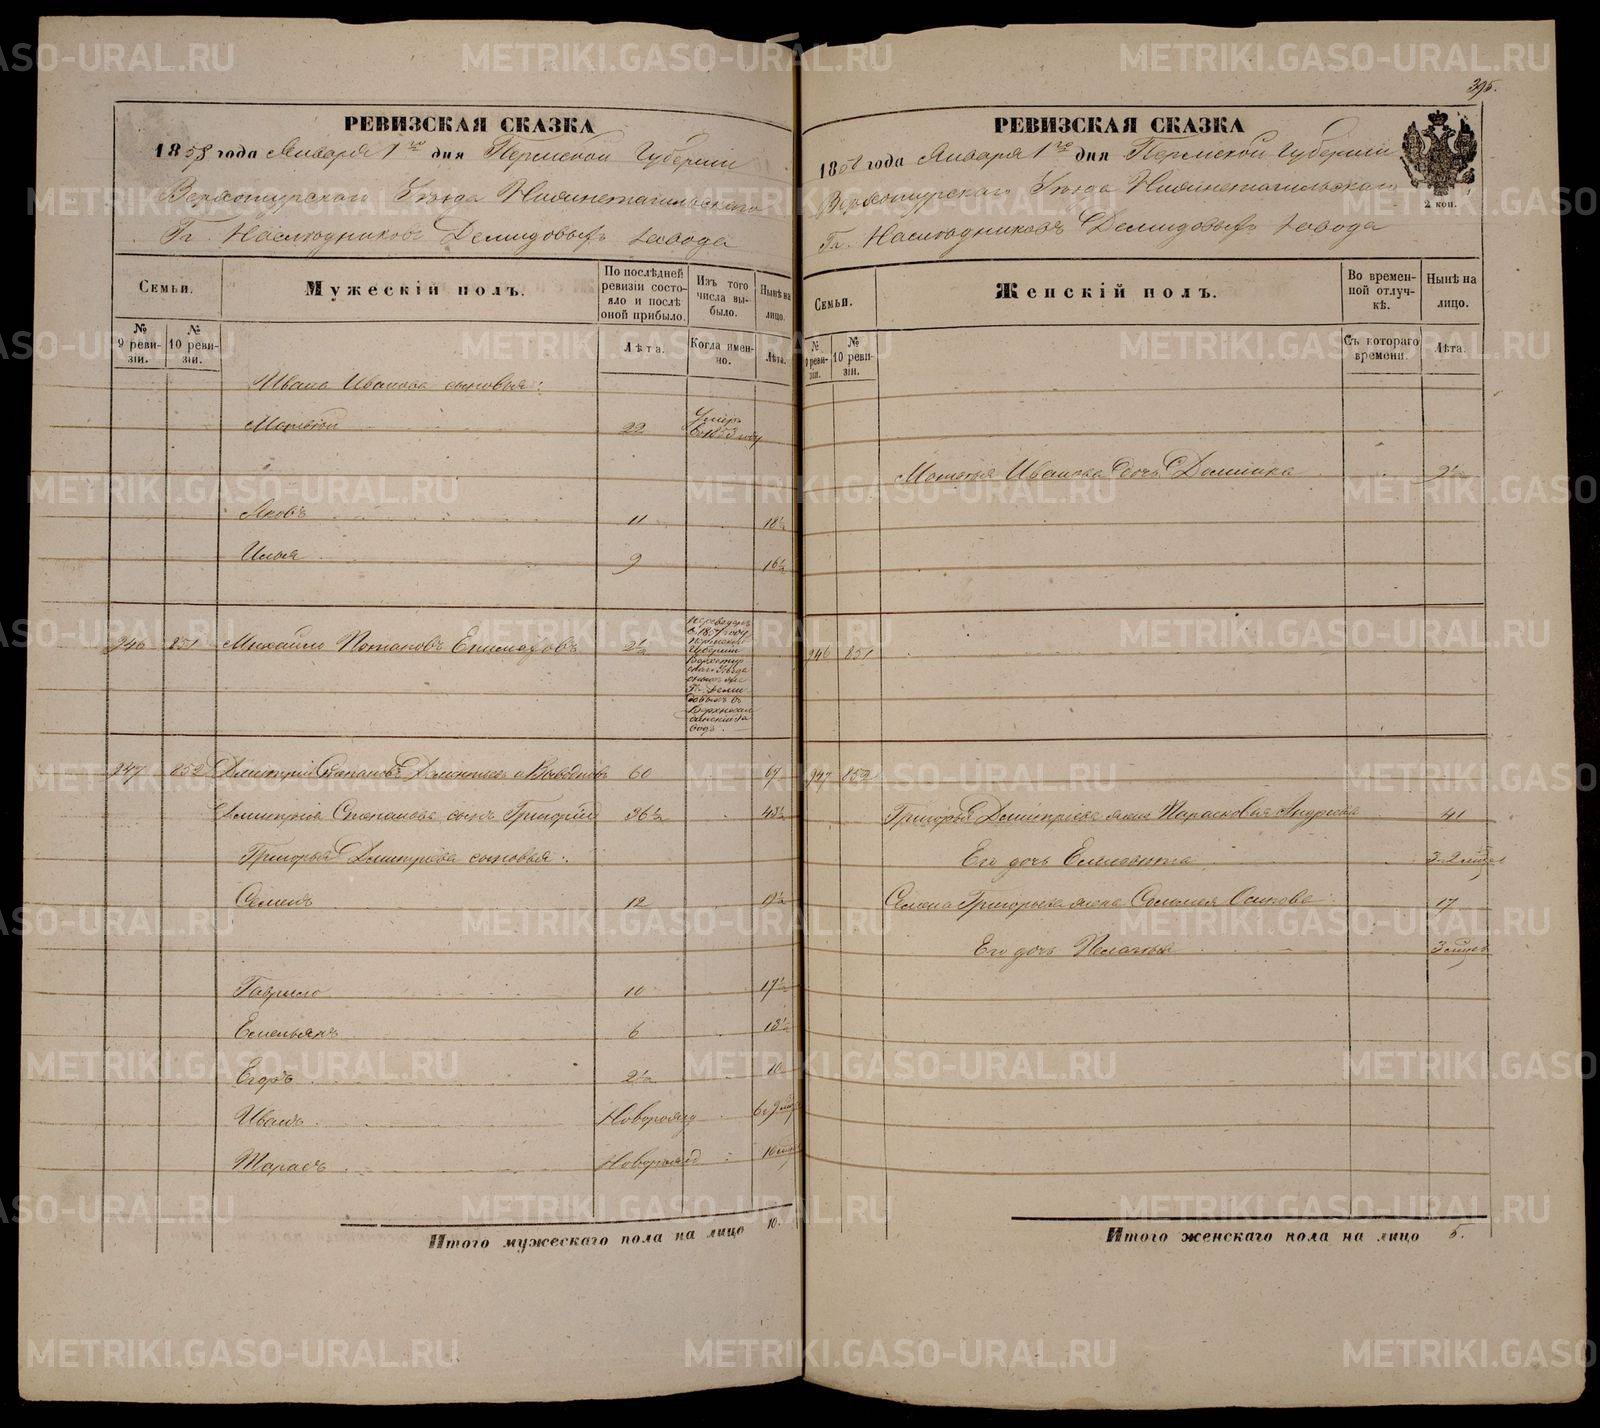 395.
РЕВИЗСКАЯ СКАЗКА
1858 года Января 1го дня Пермской Губернiи
Верхотурскаго Уѣзда Нижнетагильскаго
Гг. Наслѣдниковъ Демидовыхъ завода
Семьи.
Мужескiй полъ.
По послѣдней ревизiи состояло и послѣ оной прибыло.
Изъ того числа выбыло.
Нынѣ на лицо.
№ 9 ревизiи.
№ 10 ревизiи.
Лѣта.
Когда именно.
Лѣта.
Ивана Иванова сыновья:
22 Умеръ
Яковъ 11 18½
Илья 9 16½
246 851 Михайло Потаповъ 2½ переведенъ въ 1857 году Пермской Губернiи
247 852 Дмитрiй Степановъ 60 67
Дмитрiя Степанова сынъ Григорiй 36½ 43½
Григорья Дмитрiева сыновья:
Семенъ 12 19½
Гаврило 10 17½
Емельянъ 6 13½
Егоръ 2½ 10
Иванъ Новорожд
Тарасъ Новорожд
Итого мужескаго пола на лицо 10.
РЕВИЗСКАЯ СКАЗКА
1858 года Января 1го дня Пермской Губернiи
Верхотурскаго Уѣзда Нижнетагильскаго
Гг. Наслѣдниковъ Демидовыхъ завода
2 коп.
Семьи.
Женскiй полъ.
Во временной отлучкѣ.
Нынѣ на лицо.
№ 9 ревизiи.
№ 10 ревизiи.
Съ котораго времени.
Лѣта.
Иванова дочь Домника
246 851
247 852
Григорья Дмитрiева жена Парасковья Андреева 41
Его дочь Елисавета
Семена Григорьева жена Соломея Осипова 17
Его дочь Пелагья
Итого женскаго пола на лицо 5.
METRIKI.GASO-URAL.RU